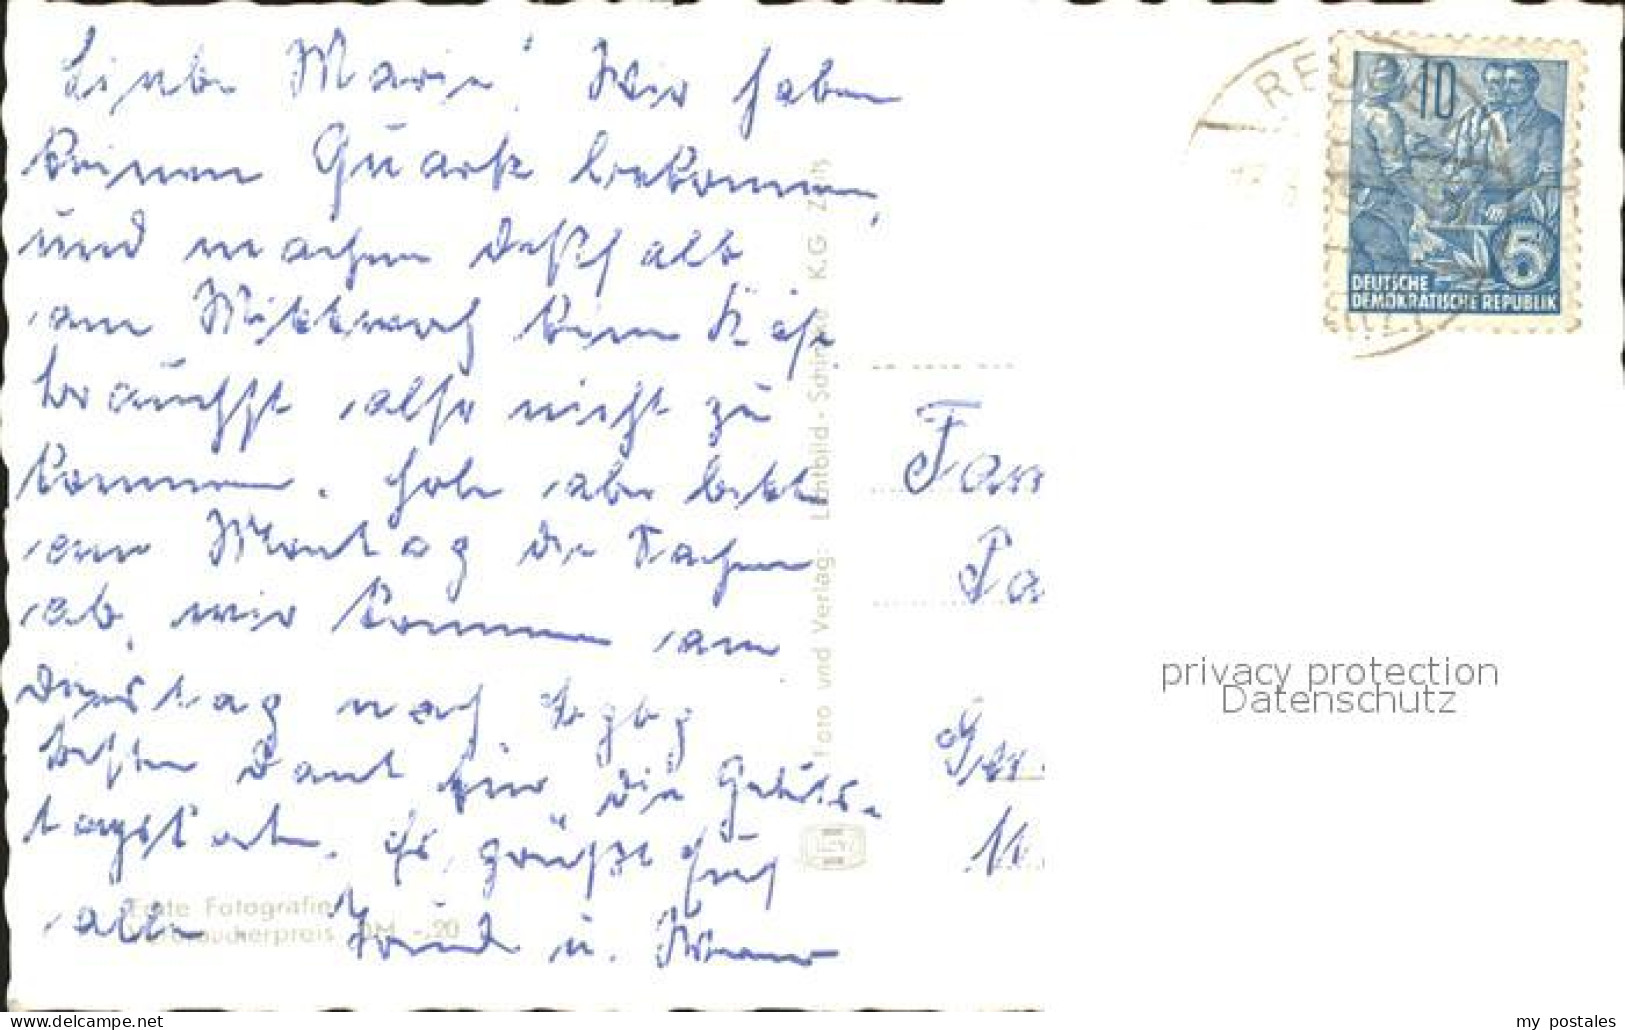 Liebe Marie! Wir haben
keinen Quark bekommen,
und machen deßhalb
am Mittwoch keine Käse
brauchst also nicht zu
kommen. Hole aber bitte
am Montag die Sachen
ab, wir kommen am
Dienstag nach
besten Dank für die Geburts-
tagskarte. Es grüßt Euch
alle u.
Echte Fotografie
Verbraucherpreis DM -.20
Foto und Verlag: Lichtbild - K.G. Zeitz
10
5
DEUTSCHE
DEMOKRATISCHE REPUBLIK
Fam
privacy protection
Datenschutz
my postales
www.delcampe.net